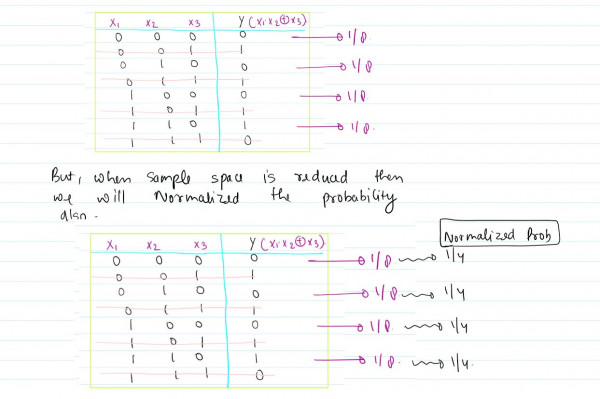 x₁ x₂ x₃ Y (x₁·x₂⊕x₃)
0 0 0 0 → 1/8
0 0 1 1
0 1 0 0 → 1/8
0 1 1 1
1 0 0 0 → 1/8
1 0 1 1
1 1 0 1 → 1/8.
1 1 1 0
But, when sample space is reduced then
we will Normalized the probability
also.
Normalized Prob
x₁ x₂ x₃ Y (x₁·x₂⊕x₃)
0 0 0 0 → 1/8 → 1/4
0 0 1 1
0 1 0 0 → 1/8 → 1/4
0 1 1 1
1 0 0 0 → 1/8. → 1/4
1 0 1 1
1 1 0 1 → 1/8. → 1/4.
1 1 1 0